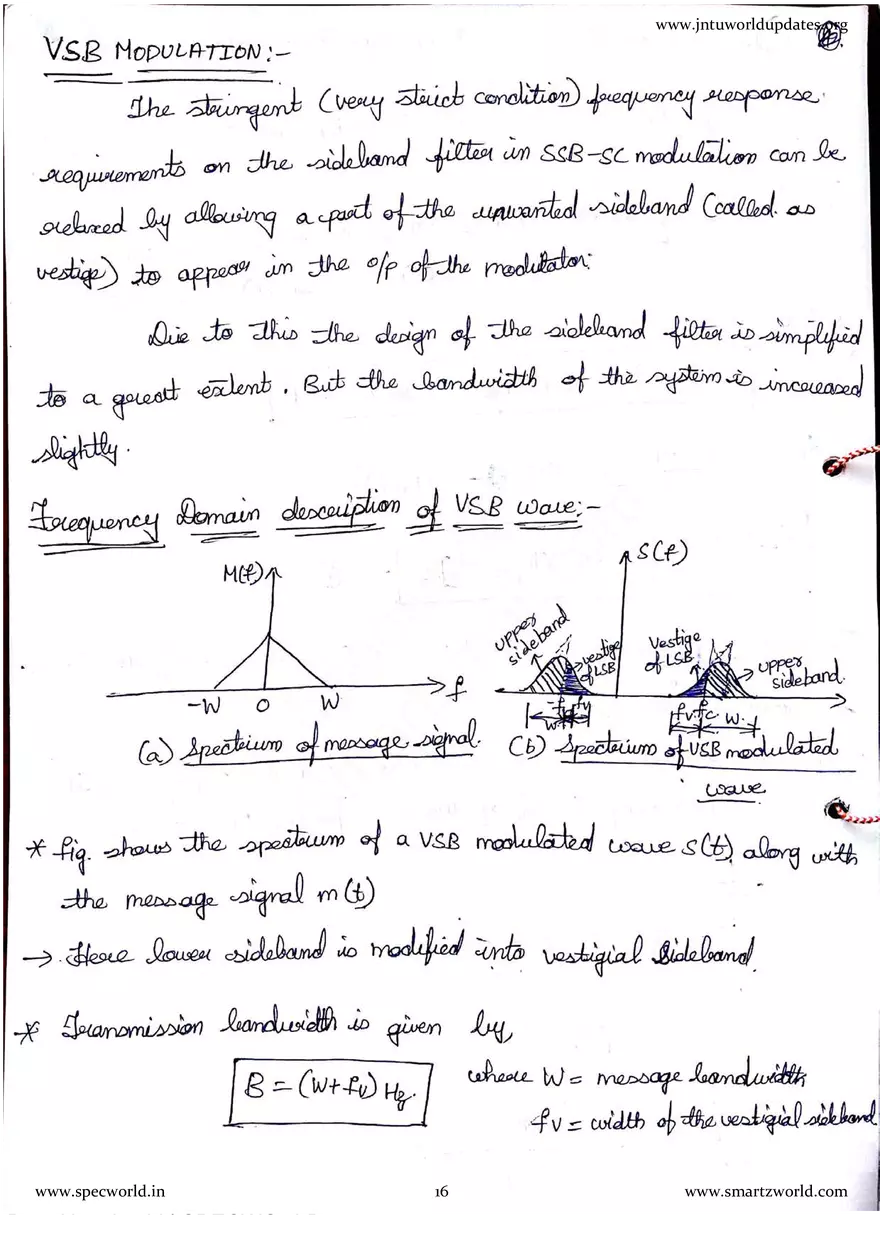 www.jntuworldupdates.org
VSB MODULATION:-
The stringent (very strict condition) frequency response
requirements on the sideband filter in SSB-SC modulation can be
relaxed by allowing a part of the unwanted sideband (called as
vestige) to appear in the o/p of the modulator.
Due to this the design of the sideband filter is simplified
to a great extent. But the bandwidth of the system is increased
slightly.
Frequency Domain description of VSB wave:-
M(f)
-W 0 W f
(a) Spectrum of message signal.
S(f)
upper sideband
vestige of LSB
Vestige of LSB
upper sideband.
-fc fv
W
fv fc W
(b) Spectrum of VSB modulated
wave
* fig. shows the spectrum of a VSB modulated wave s(t) along with
the message signal m(t)
→ Here lower sideband is modified into vestigial sideband
* Transmission bandwidth is given by,
B = (W+fv) Hz.
where W = message bandwidth
fv = width of the vestigial sideband
www.specworld.in
16
www.smartzworld.com